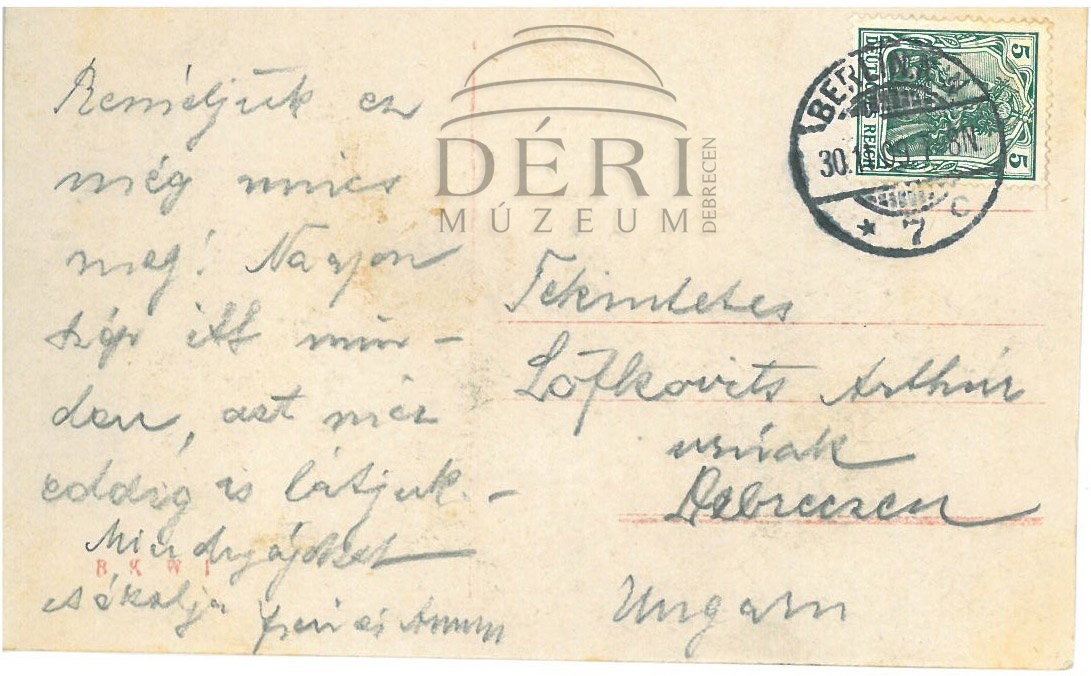 Reméljük ez
még nincs
meg! Nagyon
szép itt min-
den, azt már
eddig is látjuk. -
Mindnyájokat
csókolja
és
B K W I
DÉRI
MÚZEUM
DEBRECEN
BERLIN
30.
* 7 c
DEUTSCHES REICH
5
5
Tekintetes
Löfkovits Arthúr
úrnak
Debreczen
Ungarn